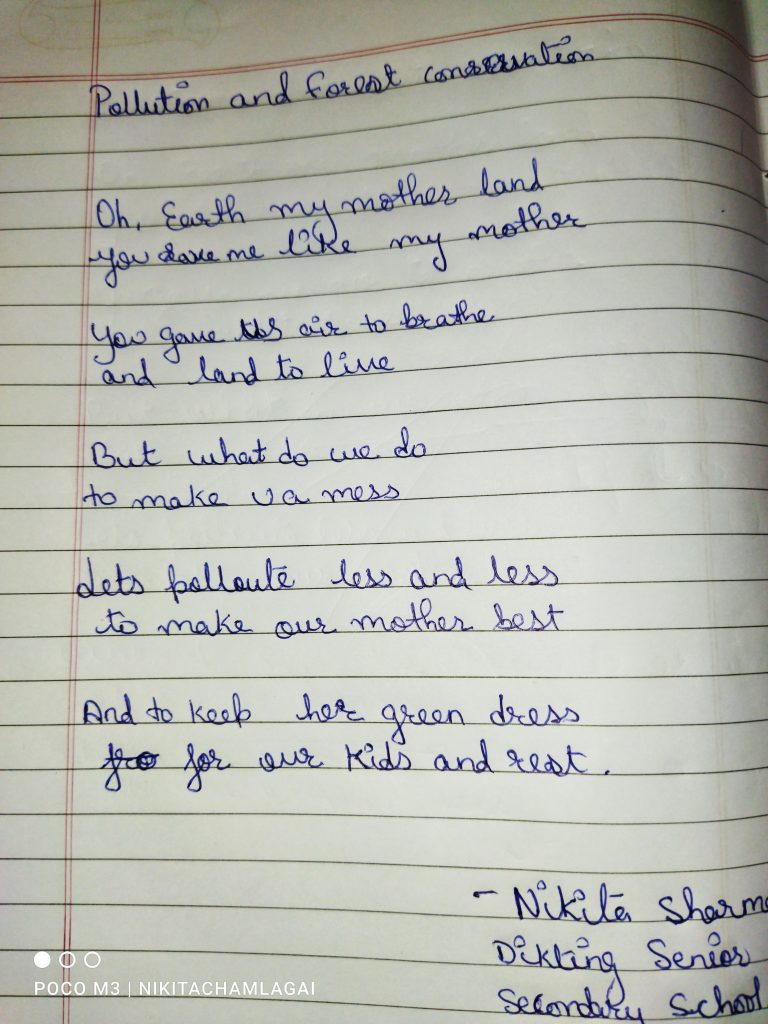 Pollution and Forest conservation
Oh, Earth my mother land
you save me like my mother
You gave us air to brathe
and land to live
But what do we do
to make u a mess
Lets polloute less and less
to make our mother best
And to keep her green dress
for our kids and rest.
- Nikita Sharma
Dikling Senior
Secondary School
POCO M3 | NIKITACHAMLAGAI